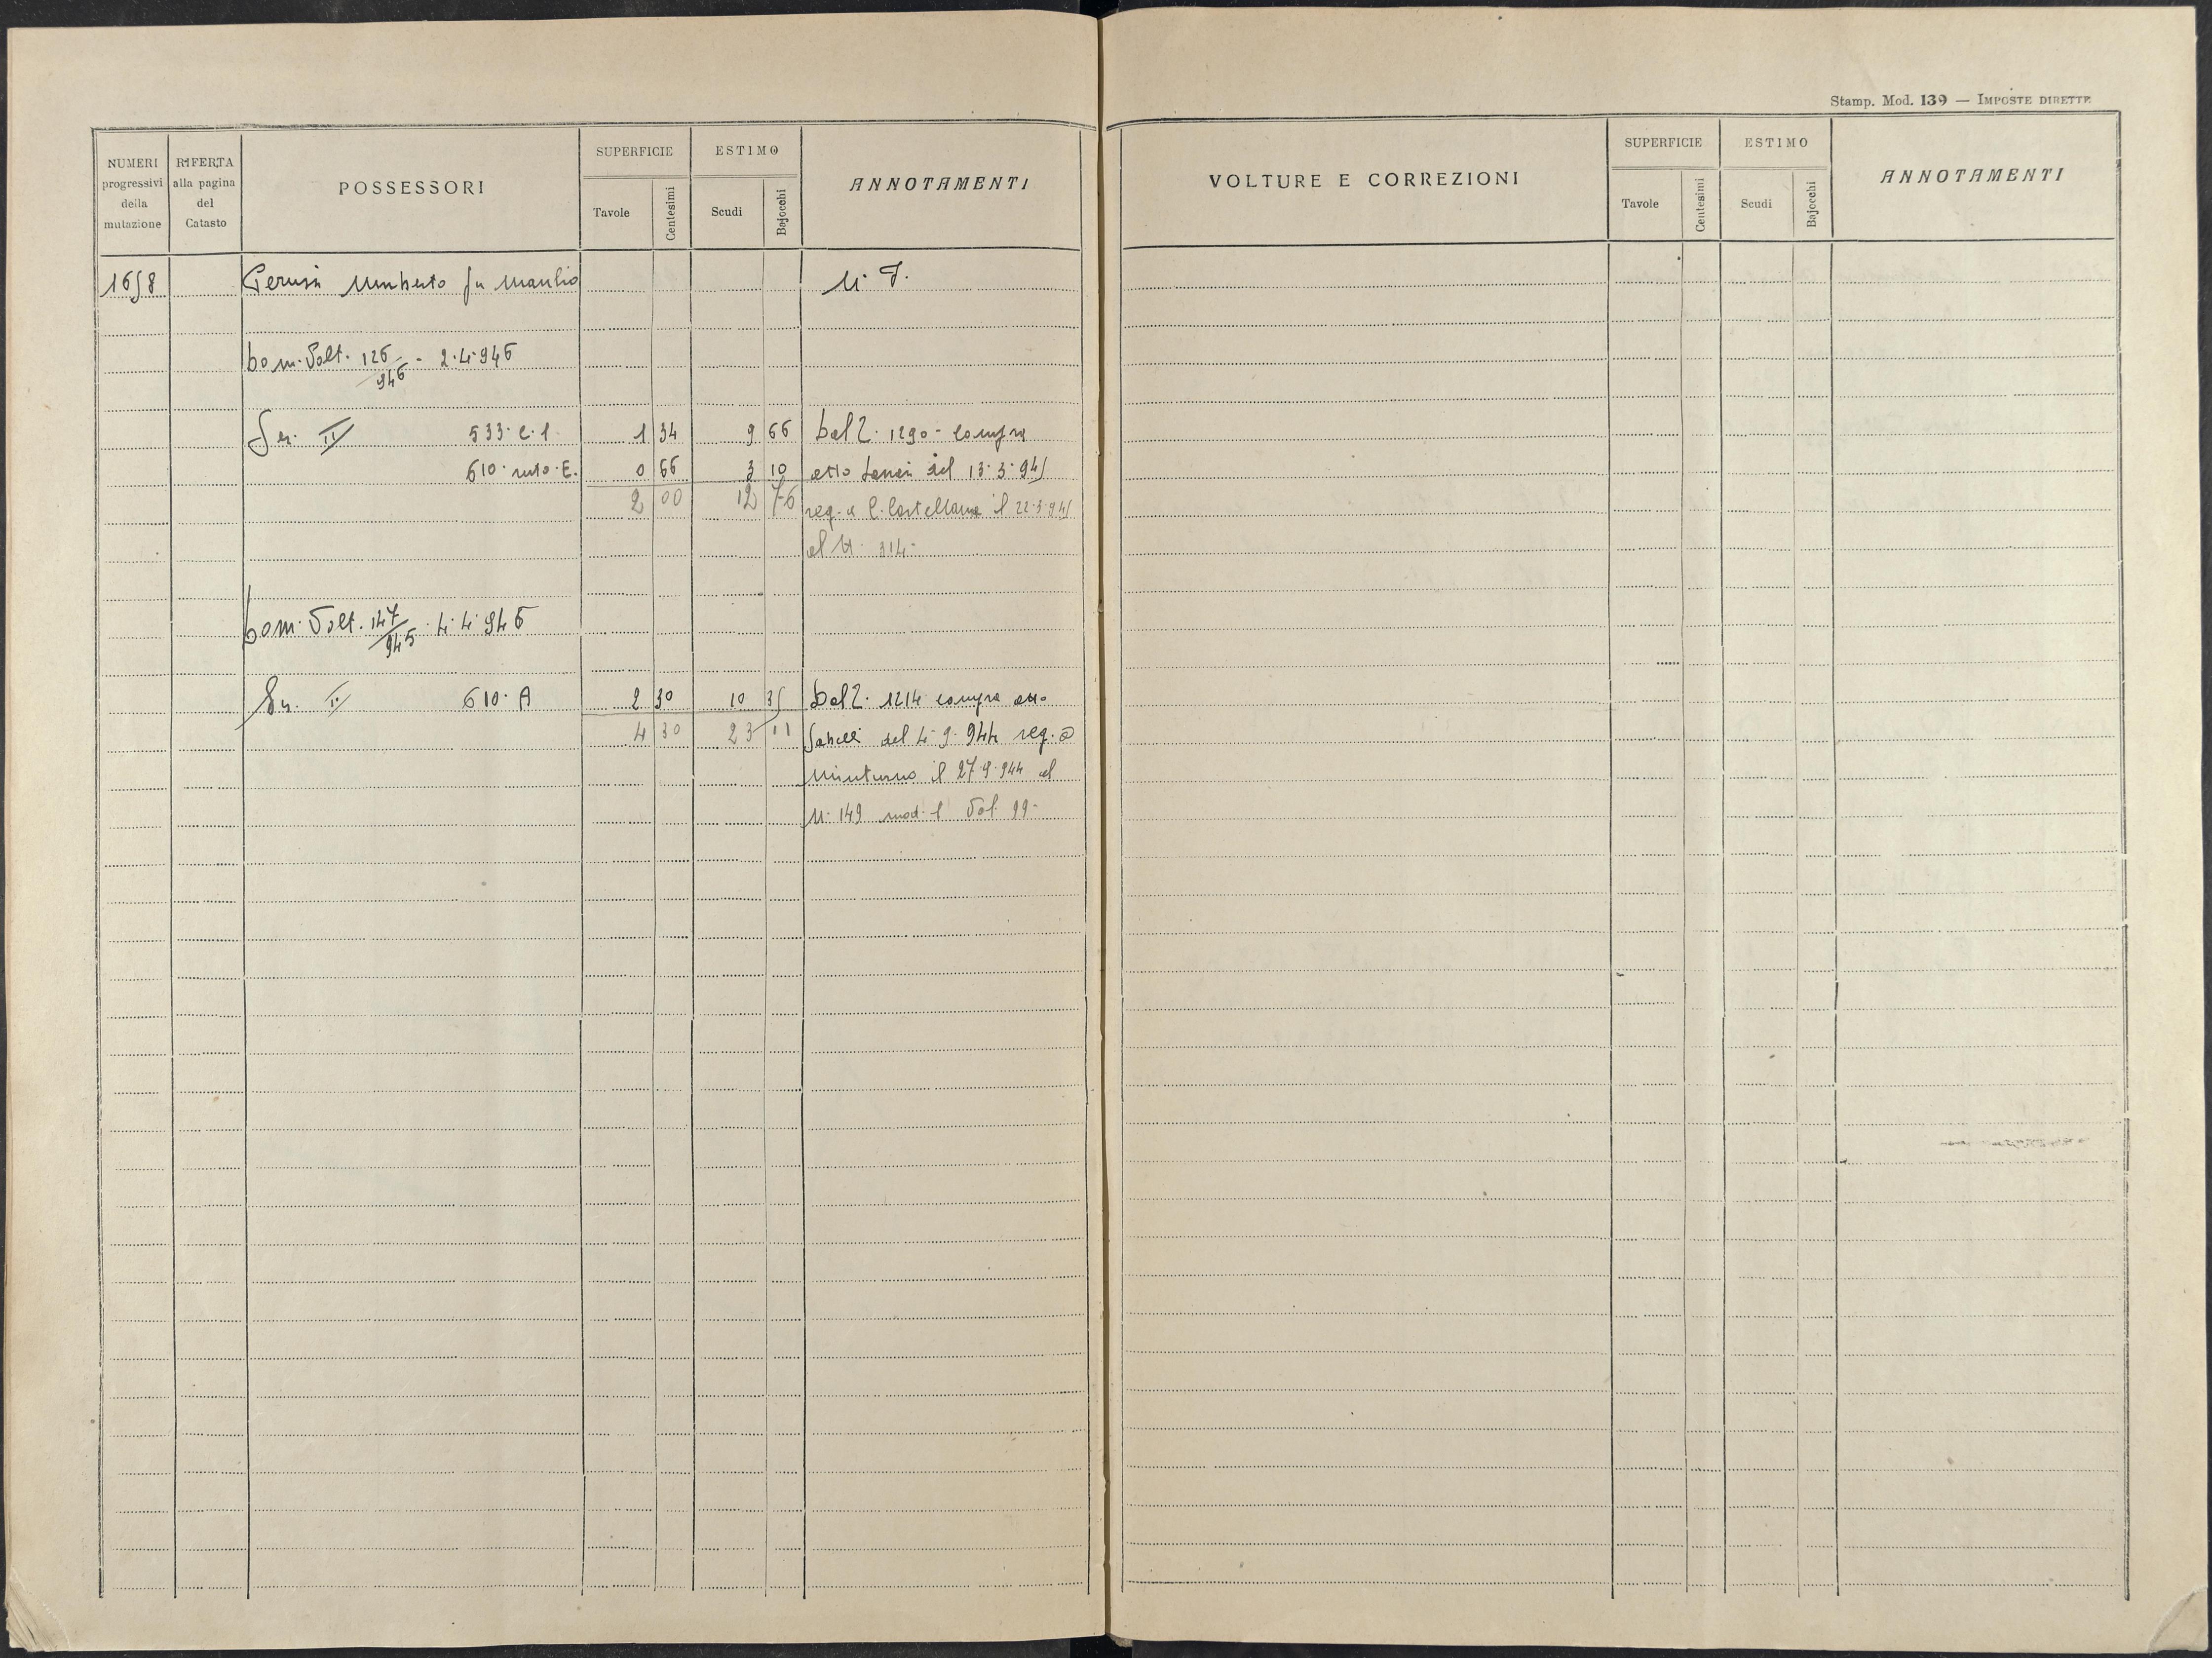 Stamp. Mod. 139 — IMPOSTE DIRETTE
NUMERI progressivi della mutazione
RIFERTA alla pagina del Catasto
POSSESSORI
SUPERFICIE
Tavole
Centesimi
ESTIMO
Scudi
Bajocchi
ANNOTAMENTI
VOLTURE E CORREZIONI
SUPERFICIE
Tavole
Centesimi
ESTIMO
Scudi
Bajocchi
ANNOTAMENTI
1658 Umberto fu Manlio
Dom. Volt. 126/946 - 2.4.946
Sez. II 533. C. 1. 1 34 9 66 Dal 2. 1290 - Compra
610. resto. E. 0 66 3 10 atto del 13.3.945
2 00 12 76 reg. a C. Castellana il 22.3.945
al N. 314.
Dom. Volt. 147/945 . 4.4.946
Sez. II 610. A 2 30 10 35 Dal 2. 1214 compra atto
4 30 23 11 del 4.9.944 reg. a
Minturno il 27.9.944 al
N. 149 mod. 1 Vol. 99.